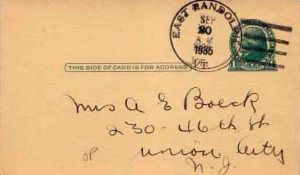 EAST RANDOLPH
SEP
20
A M
1935
VT.
THIS SIDE OF CARD IS FOR ADDRESS
Mrs A E Boeck
230-46th St
Union City
N. J.